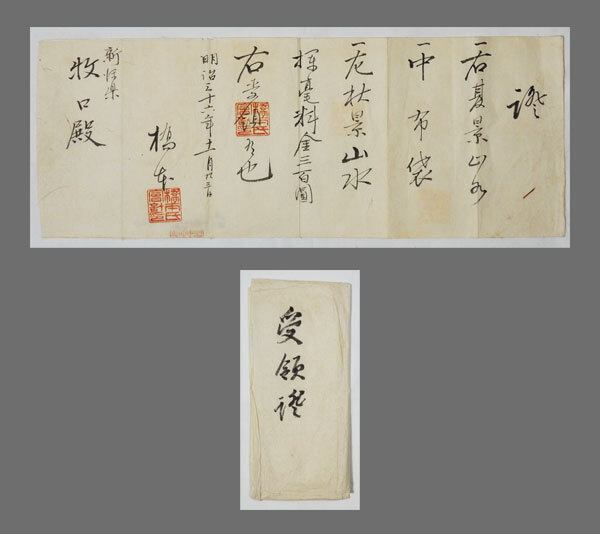 證
一右夏景山水
一中布袋
一左秋景山水
揮毫料金三百圓
右也
明治三十六年十一月廿三日
橋本
牧口殿
受領證